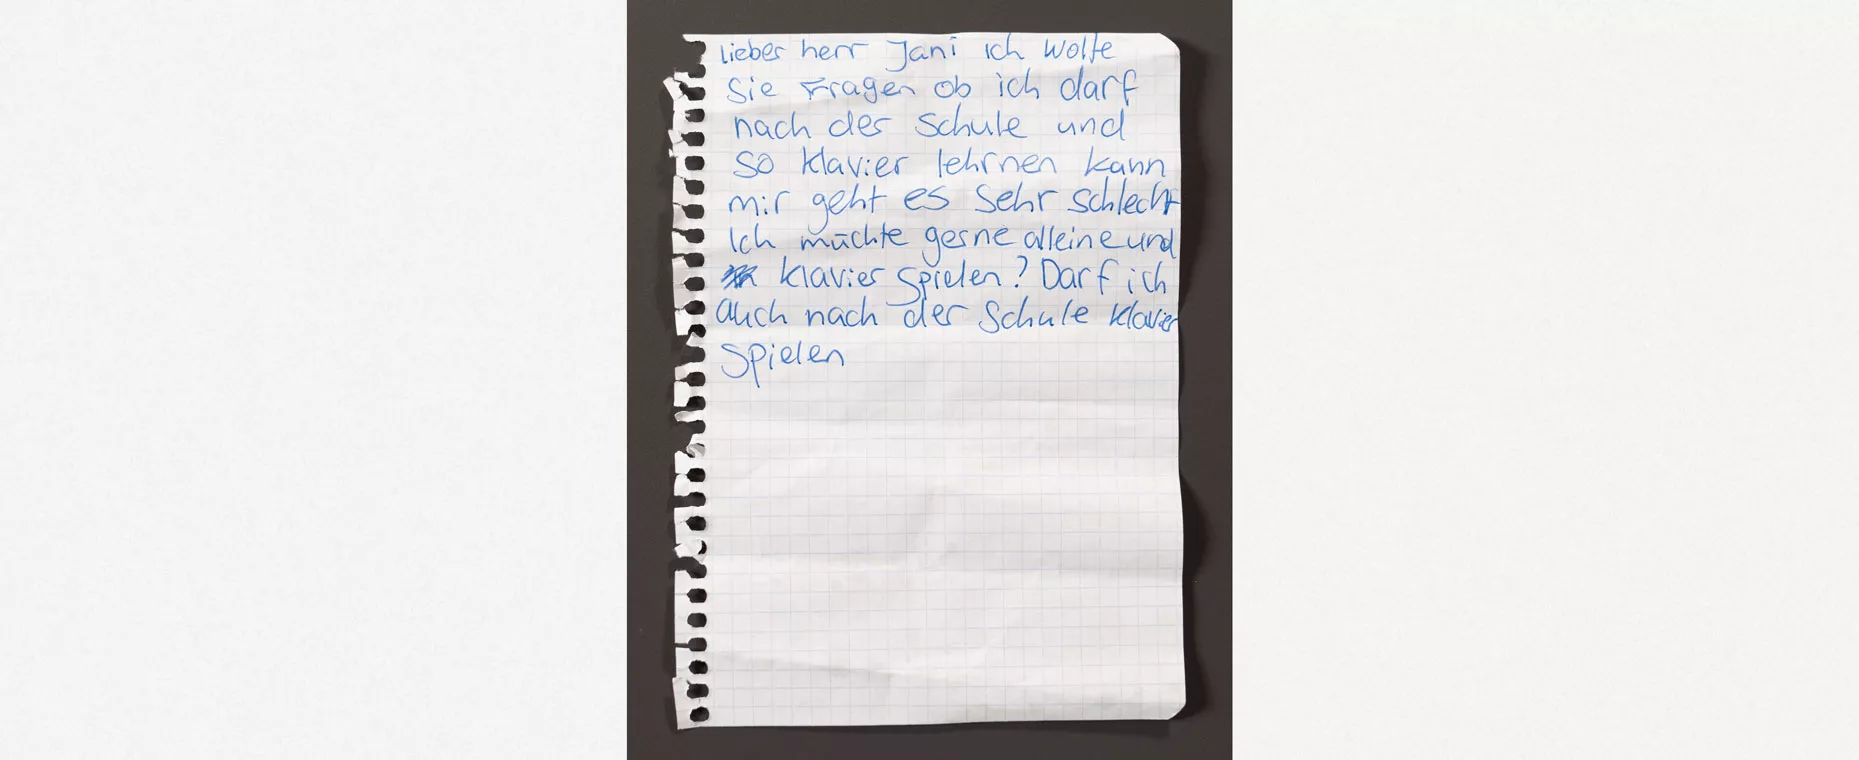 lieber herr Jani ich wolte
Sie Fragen ob ich darf
nach der Schule und
so klavier lehrnen kann
mir geht es sehr schlecht
Ich müchte gerne alleine und
klavier spielen? Darf ich
auch nach der Schule klavier
spielen